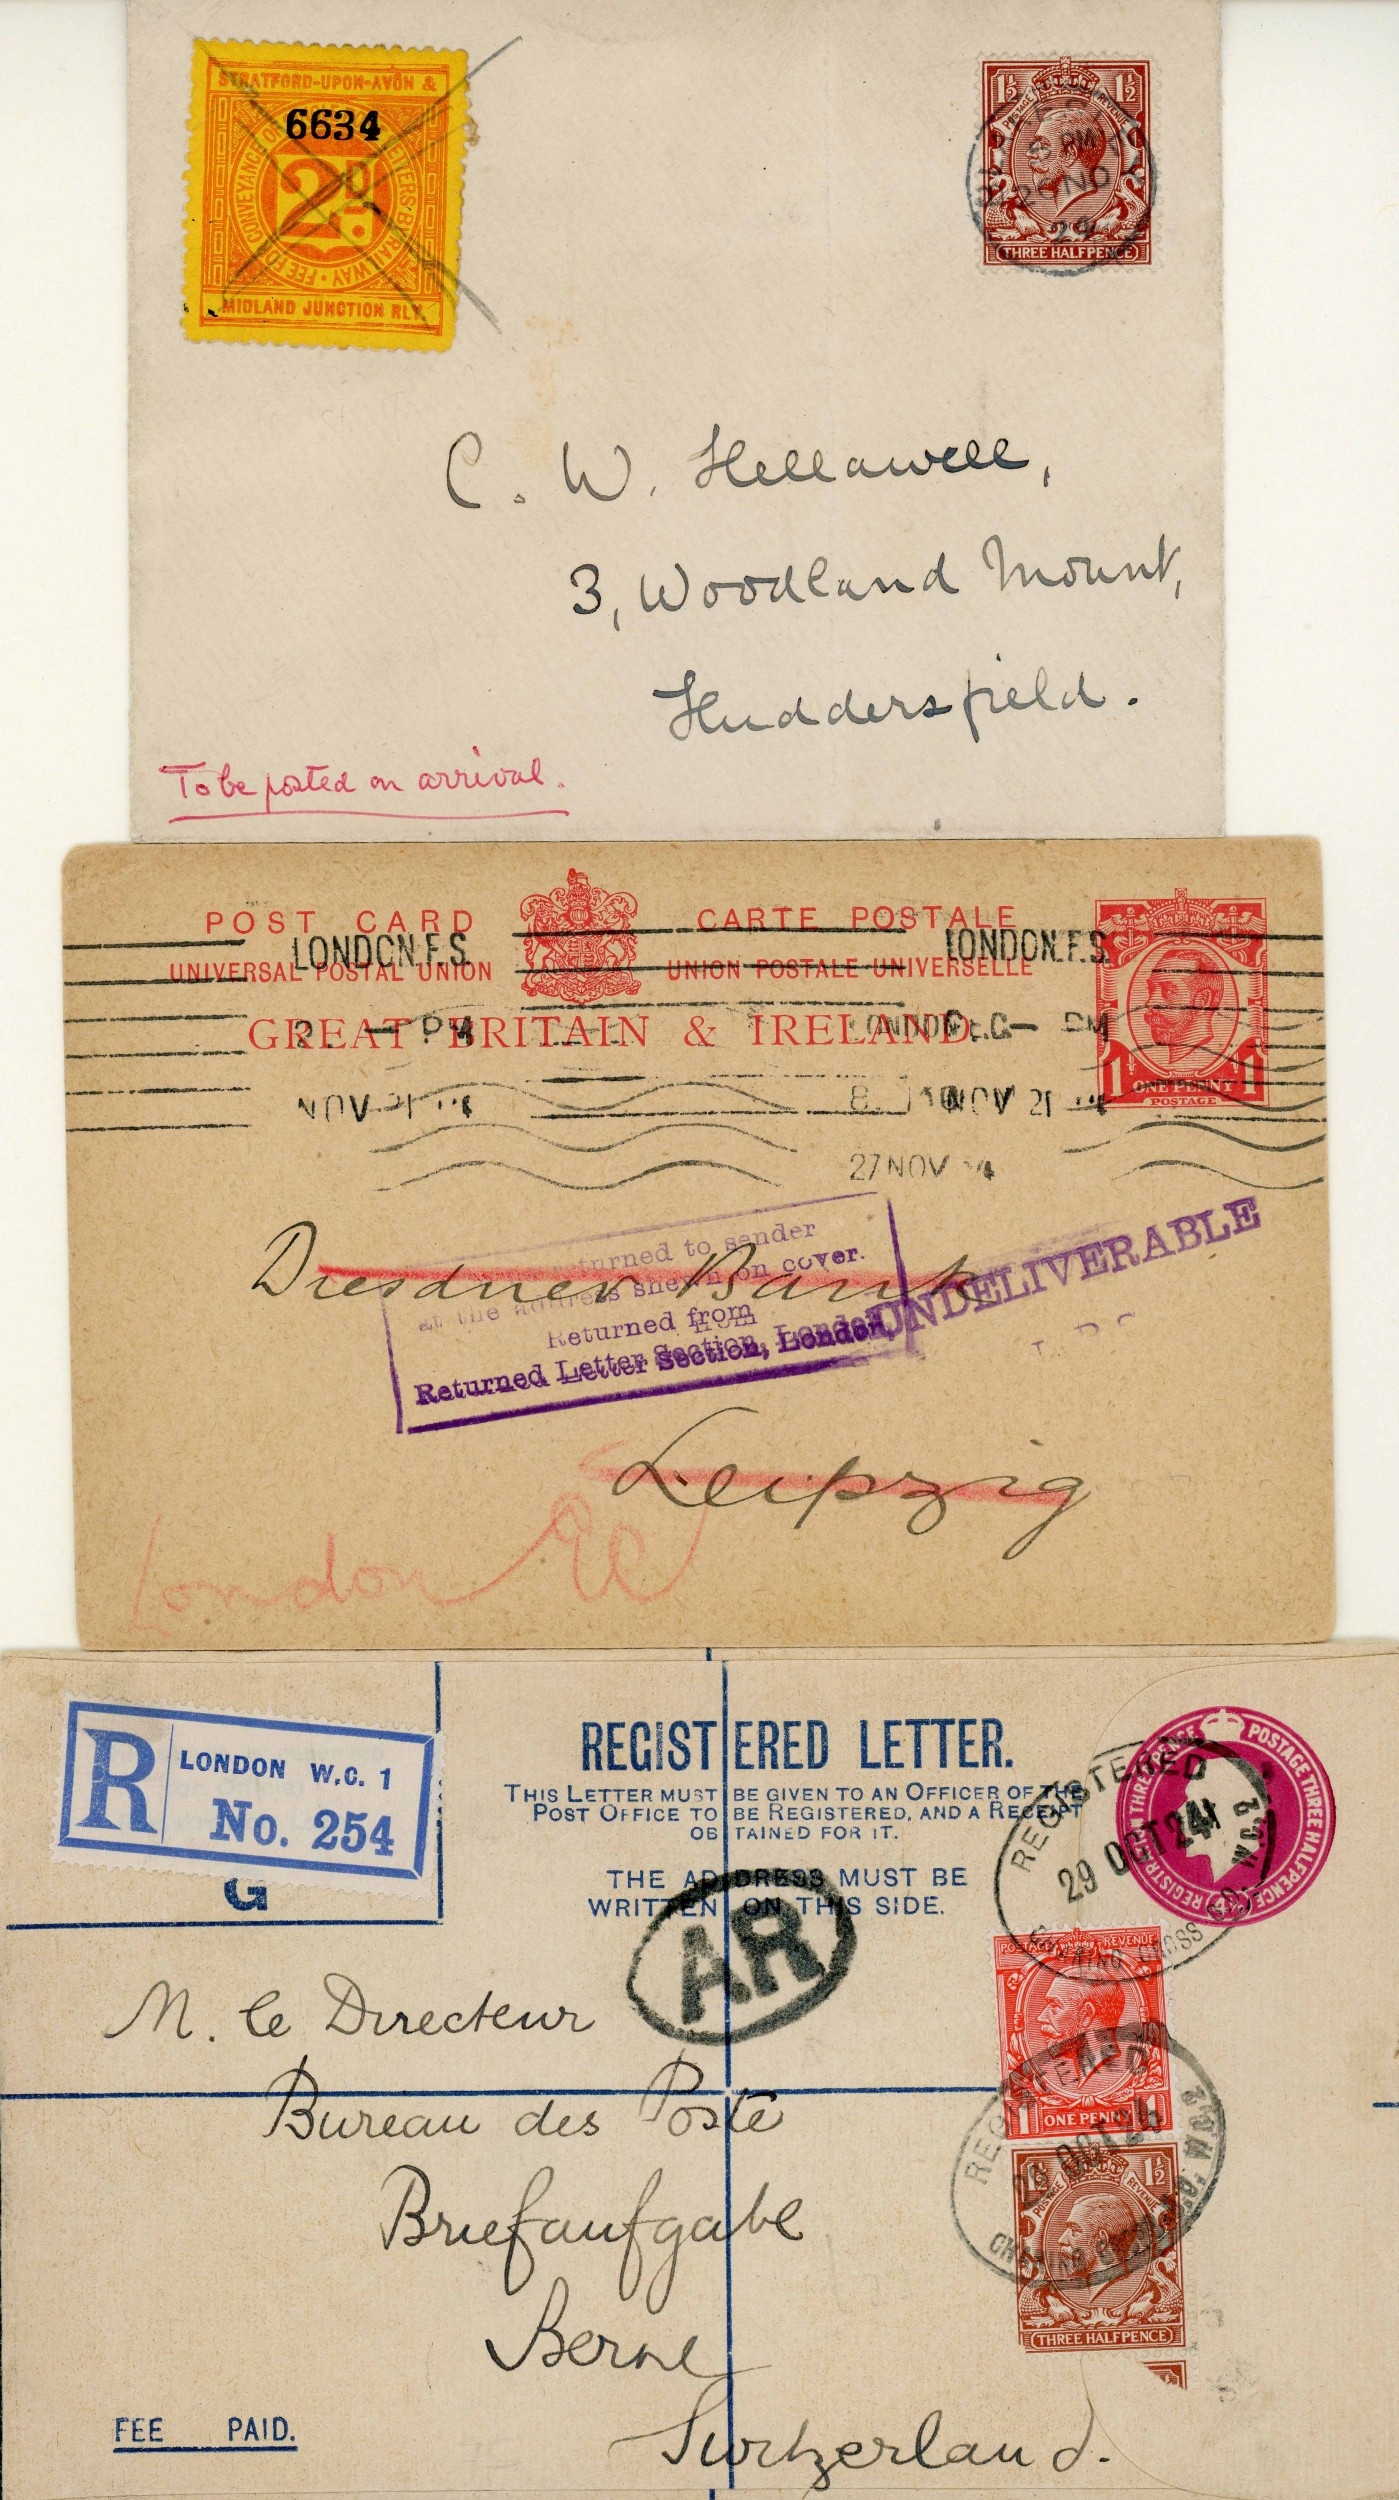 STRATFORD-UPON-AVON &
6634
FEE FOR CONVEYANCE OF LETTERS BY RAILWAY
2D
MIDLAND JUNCTION RLY.
1½ 1½
POSTAGE REVENUE
5 PM
26 NO
29
THREE HALFPENCE
C. W. Hellawell,
3, Woodland Mount,
Huddersfield.
To be posted on arrival.
POST CARD CARTE POSTALE
LONDON.F.S. LONDON.F.S.
UNIVERSAL POSTAL UNION UNION POSTALE UNIVERSELLE
GREAT BRITAIN & IRELAND
PM LONDON PM
NOV 21 NOV 21
27 NOV
1 ONE PENNY 1
POSTAGE
returned to sender
at the address shewn on cover.
Returned from
Returned Letter Section, London
UNDELIVERABLE
Dresdner Bank
Leipzig
London EC
R LONDON W.C. 1
No. 254
G
REGISTERED LETTER.
THIS LETTER MUST BE GIVEN TO AN OFFICER OF THE
POST OFFICE TO BE REGISTERED, AND A RECEIPT
OBTAINED FOR IT.
THE ADDRESS MUST BE
WRITTEN ON THIS SIDE.
REGISTRATION THREEPENCE POSTAGE THREE HALFPENCE
REGISTERED
29 OCT 24
CHARING CROSS W.C.2
AR
POSTAGE REVENUE
1 ONE PENNY 1
REGISTERED
29 OCT 24
CHARING CROSS W.C.2
1½ 1½
POSTAGE REVENUE
THREE HALFPENCE
M. le Directeur
Bureau des Poste
Briefaufgabe
Berne
Switzerland.
FEE PAID.